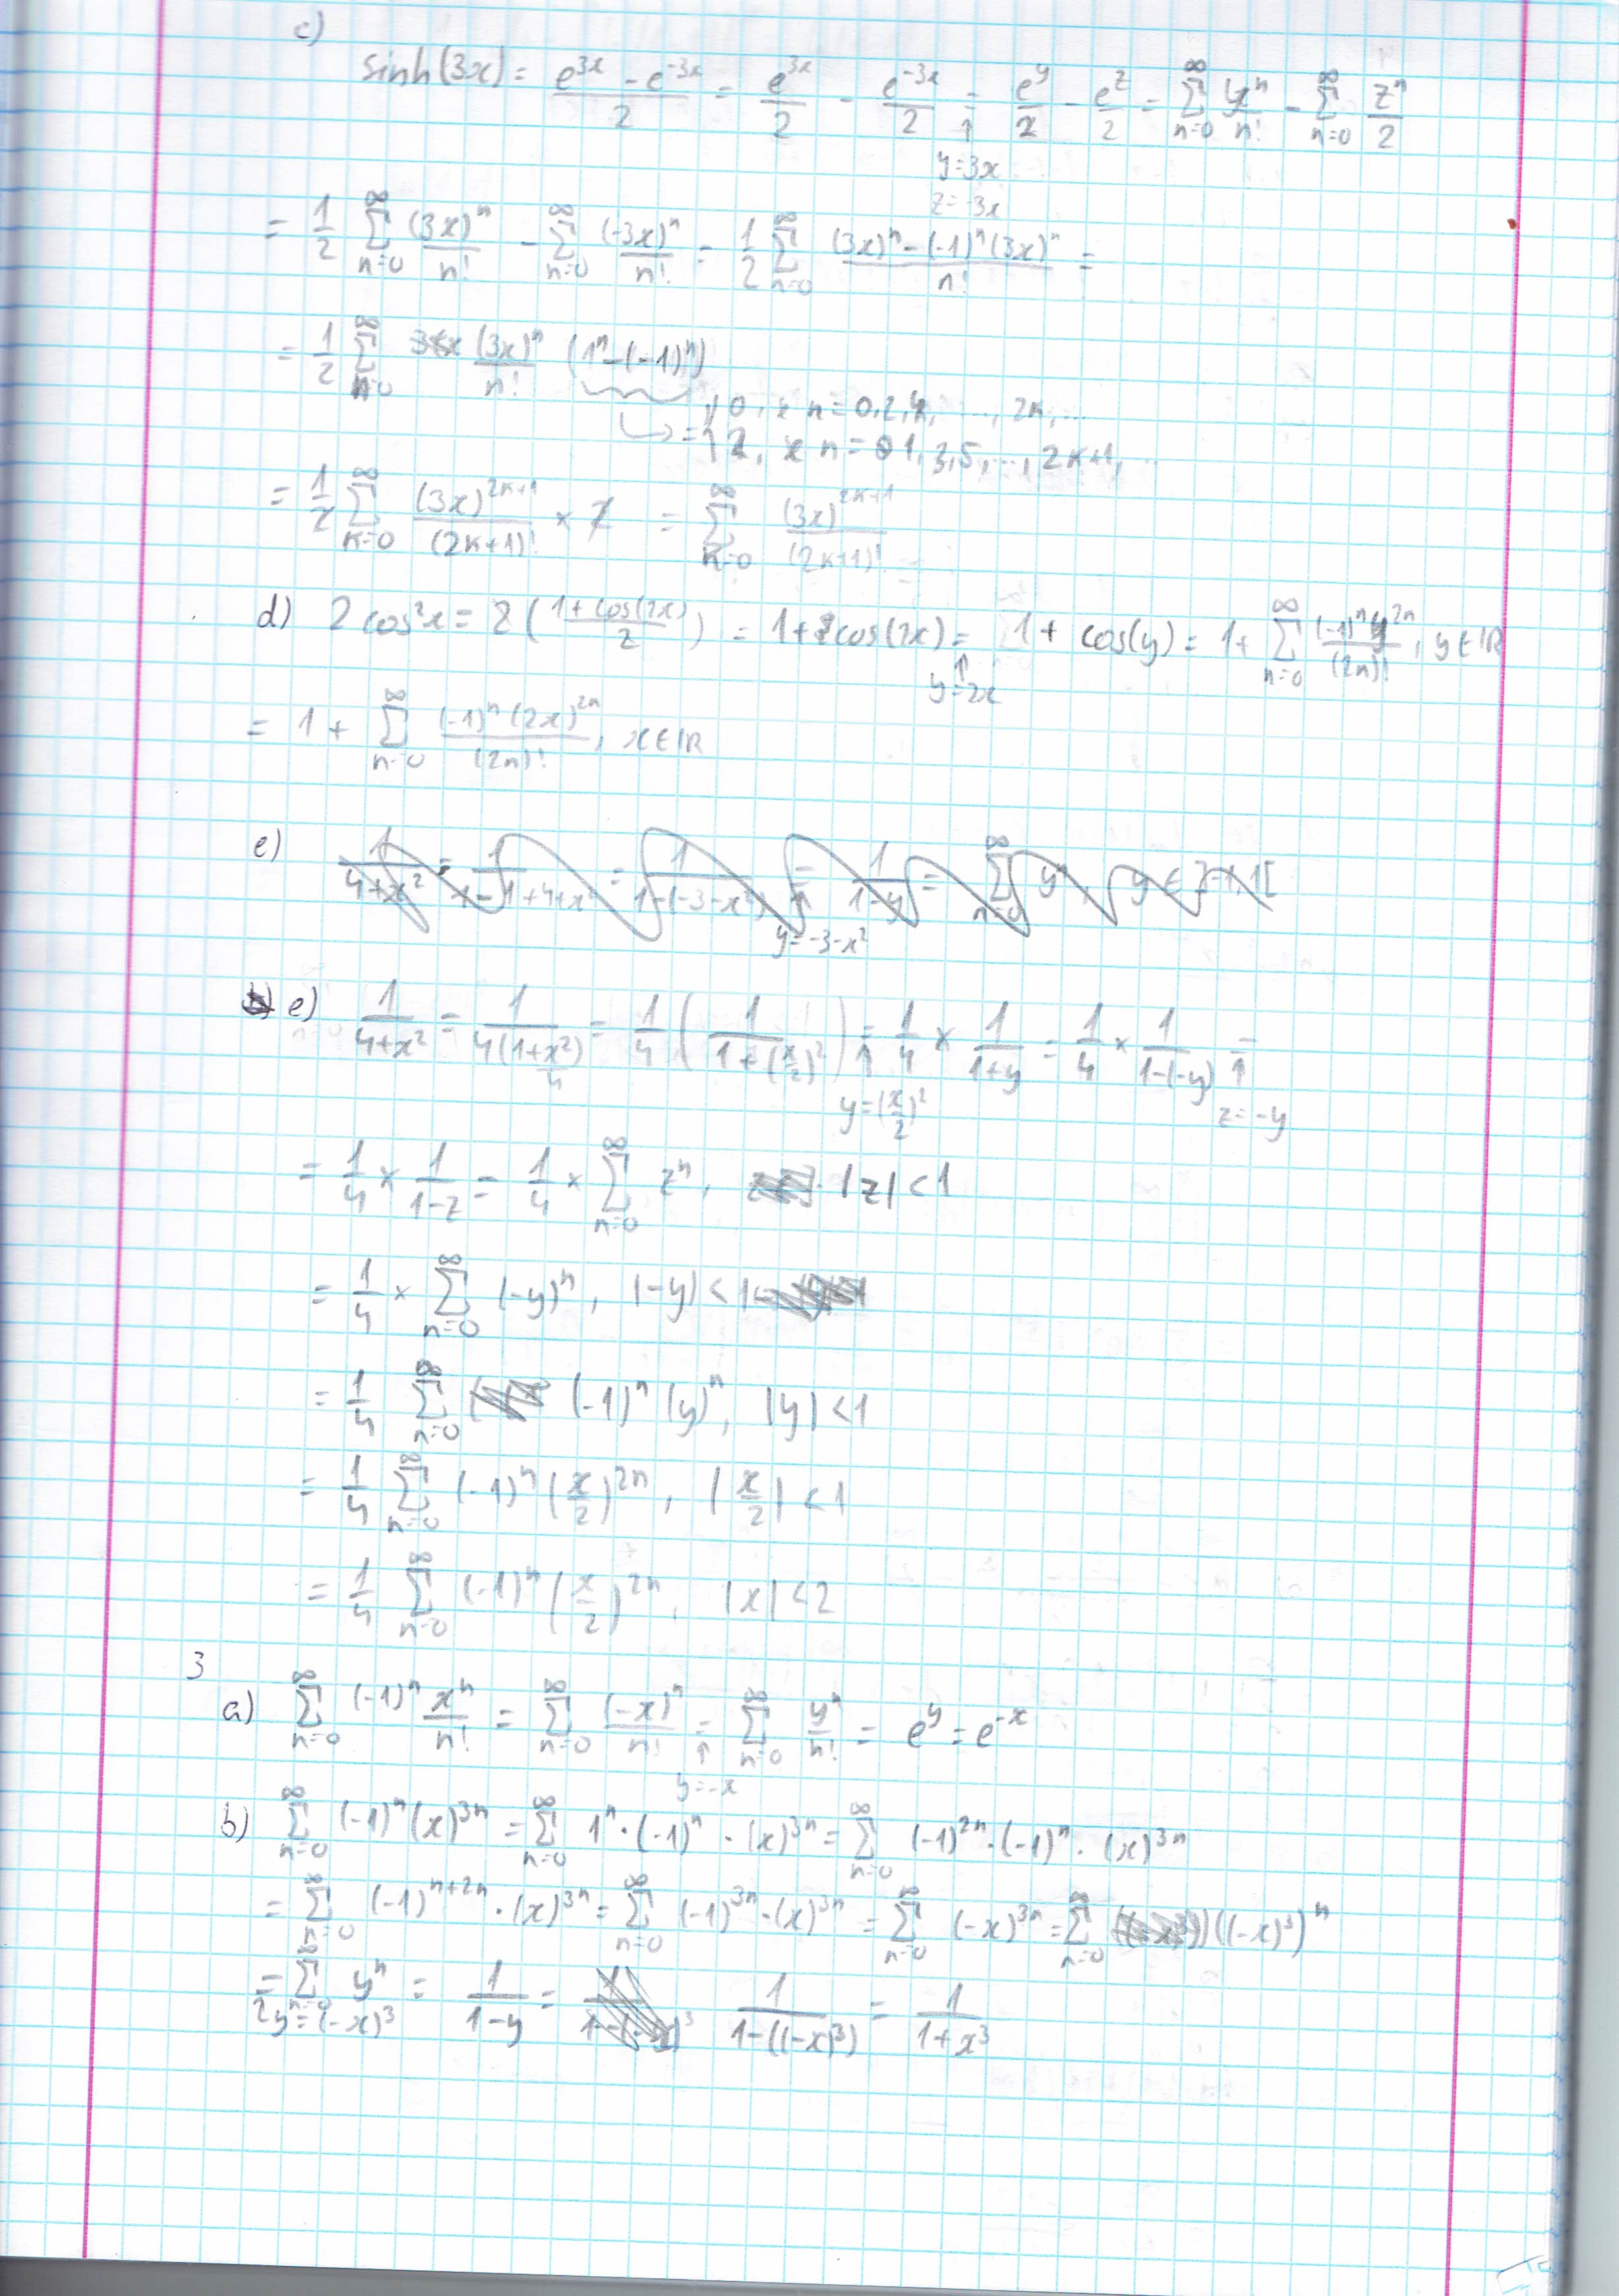 c)
sinh(3x) = (e^{3x} - e^{-3x})/2 = e^{3x}/2 - e^{-3x}/2 = e^y/2 - e^z/2 = ∑_{n=0}^{∞} y^n/n! - ∑_{n=0}^{∞} z^n/2
↑ y=3x
z=-3x
= 1/2 ∑_{n=0}^{∞} (3x)^n/n! - ∑_{n=0}^{∞} (-3x)^n/n! = 1/2 ∑_{n=0}^{∞} ((3x)^n - (-1)^n (3x)^n)/n! =
= 1/2 ∑_{n=0}^{∞} (3x)^n/n! (1^n - (-1)^n)
↳ = { 0, x n = 0,2,4, ..., 2k, ...
2, x n = 1,3,5, ..., 2k+1, ...
= 1/2 ∑_{k=0}^{∞} (3x)^{2k+1}/(2k+1)! × 2 = ∑_{k=0}^{∞} (3x)^{2k+1}/(2k+1)!
d) 2cos²x = 2((1+cos(2x))/2) = 1+cos(2x) = 1 + cos(y) = 1 + ∑_{n=0}^{∞} (-1)^n y^{2n}/(2n)!, y ∈ ℝ
↑ y=2x
= 1 + ∑_{n=0}^{∞} (-1)^n (2x)^{2n}/(2n)!, x ∈ ℝ
e) 1/(4+x²) = 1/(1-1+4+x²) = 1/(1-(-3-x²)) = 1/(1-y) = ∑_{n=0}^{∞} y^n, y ∈ ]-1,1[
↑ y=-3-x²
e) 1/(4+x²) = 1/(4(1+x²/4)) = 1/4 (1/(1+(x/2)²)) = 1/4 × 1/(1+y) = 1/4 × 1/(1-(-y)) =
↑ y=(x/2)² ↑ z=-y
= 1/4 × 1/(1-z) = 1/4 × ∑_{n=0}^{∞} z^n, |z| < 1
= 1/4 × ∑_{n=0}^{∞} (-y)^n, |-y| < 1
= 1/4 ∑_{n=0}^{∞} (-1)^n (y)^n, |y| < 1
= 1/4 ∑_{n=0}^{∞} (-1)^n (x/2)^{2n}, |x/2| < 1
= 1/4 ∑_{n=0}^{∞} (-1)^n (x/2)^{2n}, |x| < 2
3
a) ∑_{n=0}^{∞} (-1)^n x^n/n! = ∑_{n=0}^{∞} (-x)^n/n! = ∑_{n=0}^{∞} y^n/n! = e^y = e^{-x}
↑ y=-x
b) ∑_{n=0}^{∞} (-1)^n (x)^{3n} = ∑_{n=0}^{∞} 1^n · (-1)^n · (x)^{3n} = ∑_{n=0}^{∞} (-1)^{2n} · (-1)^n · (x)^{3n}
= ∑_{n=0}^{∞} (-1)^{n+2n} · (x)^{3n} = ∑_{n=0}^{∞} (-1)^{3n} · (x)^{3n} = ∑_{n=0}^{∞} (-x)^{3n} = ∑_{n=0}^{∞} ((-x)^3)^n
= ∑_{n=0}^{∞} y^n = 1/(1-y) = 1/(1-((-x)^3)) = 1/(1+x^3)
y=(-x)^3